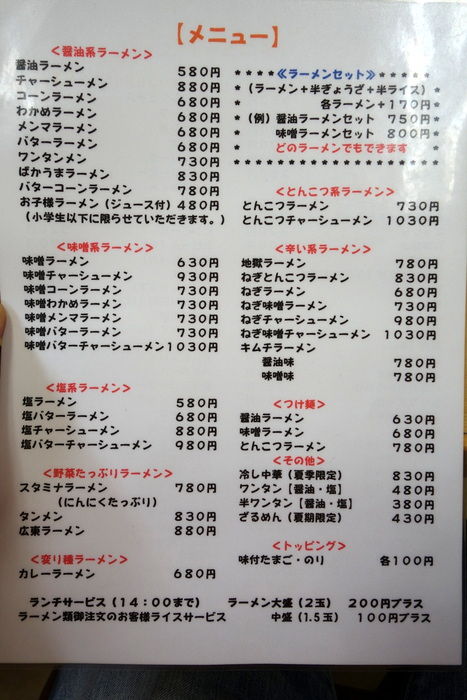 【メニュー】
<醤油系ラーメン>
醤油ラーメン 580円
チャーシューメン 880円
コーンラーメン 680円
わかめラーメン 680円
メンマラーメン 680円
バターラーメン 680円
ワンタンメン 730円
ばかうまラーメン 830円
バターコーンラーメン 780円
お子様ラーメン(ジュース付) 480円
(小学生以下に限らせていただきます。)
<味噌系ラーメン>
味噌ラーメン 630円
味噌チャーシューメン 930円
味噌コーンラーメン 730円
味噌わかめラーメン 730円
味噌メンマラーメン 730円
味噌バターラーメン 730円
味噌バターチャーシューメン 1030円
<塩系ラーメン>
塩ラーメン 580円
塩バターラーメン 680円
塩チャーシューメン 880円
塩バターチャーシューメン 980円
<野菜たっぷりラーメン>
スタミナラーメン 780円
(にんにくたっぷり)
タンメン 830円
広東ラーメン 880円
<変り種ラーメン>
カレーラーメン 680円
****≪ラーメンセット≫*****
*(ラーメン+半ぎょうざ+半ライス)*
* 各ラーメン+170円*
*(例)醤油ラーメンセット 750円*
* 味噌ラーメンセット 800円*
* どのラーメンでもできます *
******************
<とんこつ系ラーメン>
とんこつラーメン 730円
とんこつチャーシューメン 1030円
<辛い系ラーメン>
地獄ラーメン 780円
ねぎとんこつラーメン 830円
ねぎラーメン 680円
ねぎ味噌ラーメン 730円
ねぎチャーシューメン 980円
ねぎ味噌チャーシューメン 1030円
キムチラーメン
醤油味 780円
味噌味 780円
<つけ麺>
醤油ラーメン 630円
味噌ラーメン 680円
とんこつラーメン 780円
<その他>
冷し中華(夏季限定) 830円
ワンタン【醤油・塩】 480円
半ワンタン【醤油・塩】 380円
ざるめん(夏期限定) 430円
<トッピング>
味付たまご・のり 各100円
ランチサービス(14:00まで) ラーメン大盛(2玉) 200円プラス
ラーメン類御注文のお客様ライスサービス 中盛(1.5玉) 100円プラス